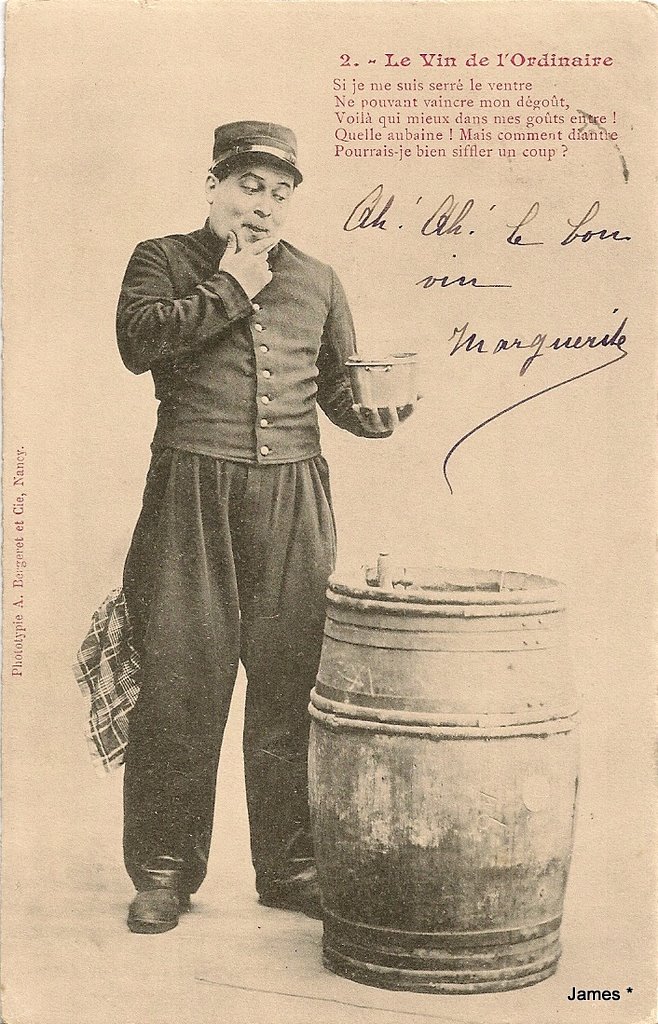 2. - Le Vin de l'Ordinaire
Si je me suis serré le ventre
Ne pouvant vaincre mon dégoût,
Voilà qui mieux dans mes goûts entre !
Quelle aubaine ! Mais comment diantre
Pourrais-je bien siffler un coup ?
Ah ! Ah ! le bon
vin
Marguerite
Phototypie A. Bergeret et Cie, Nancy.
James *